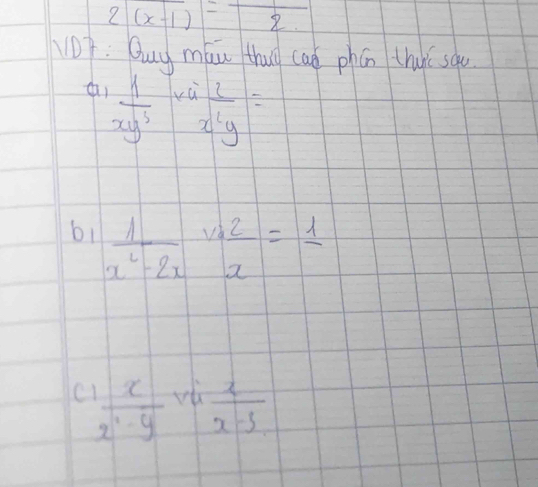 2 (x-1) = 2
VD7: Quy mẫu thức các phân thức sau.
a, 1/xy³ và 2/x²y =
b, 1/x²-2x và 2/x = 1
c, x/x²-9 và 2/x-3